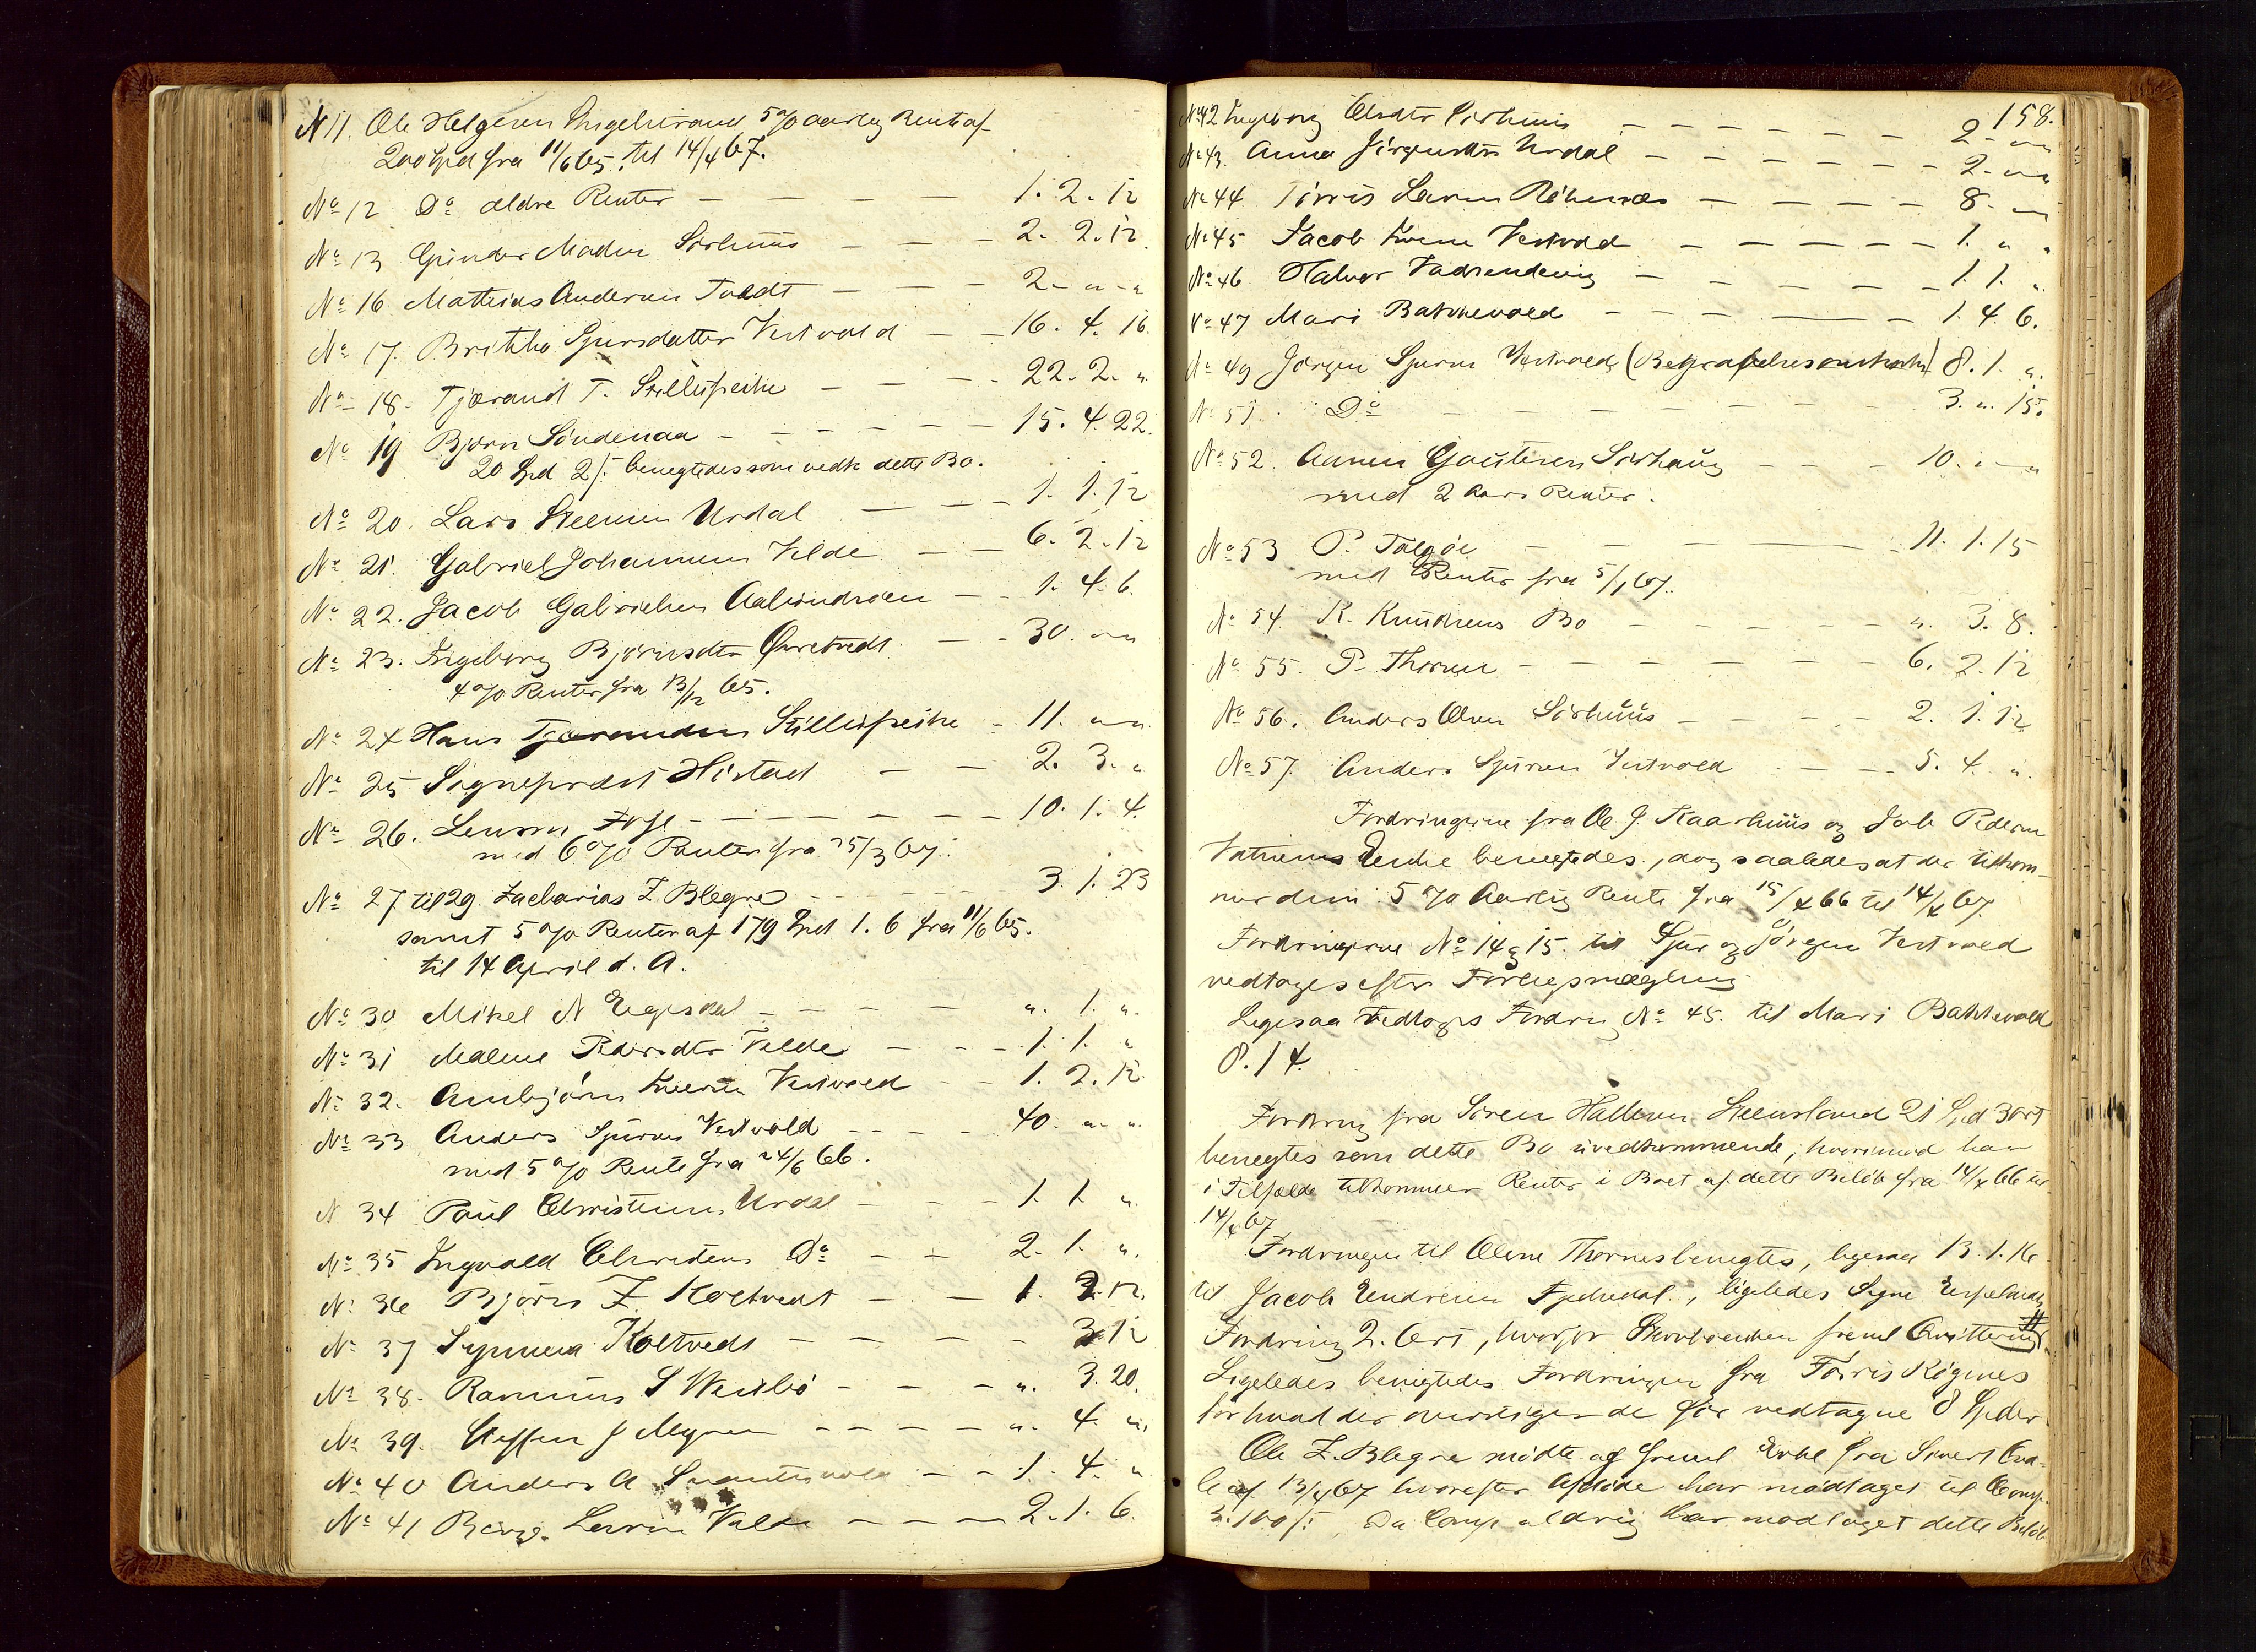 N 11. Ole Helgesen Engelstrand 5 % aarlig Rente af
200 Spd fra 11/6 65. til 14/4 67.
No 12 Do ældre Renter — — — — 1. 2. 12
No 13 Gunder Madsen Sørhuus — — — 2. 2. 12.
No 16 Mathias Andersen Tvedt — — — 2 - " - "
No 17. Brithe Sjursdatter Vestvold — — 16. 4. 16.
No 18. Tjærand T. — — — 22. 2. "
No 19 Bjørn Søndenaa — — — — — 15. 4 22.
20 Spd 2 /: benegtedes som vedk dette Bo.
No 20. Lars Steensen Urdal — — — 1. 1. 12
No 21. Gabriel Johannesen Velde — — 6. 2. 12
No 22. Jacob Gabrielsen — — 1. 4. 6.
No 23. Ingeborg Bjørnsdtr — — 30. " "
4 % Renter fra 13/12 65.
No 24 Hans — 11. " "
No 25 Signe Histad — — 2. 3. "
No 26. Fosse — — — — — — 10. 1. 4.
med 6 % Renter fra 25/3 67.
No 27 til 29. Zacharias Z. Blegne — — — 3. 1. 23
samt 5 % Renter af 179 Spd 1. 6 fra 11/6 65.
til 14 April d. A.
No 30 Mikel N — — — — ". 1. ".
No 31 Malene Pedersdtr Velde — — — 1. 1. "
No 32. Anbjørn Iversen Vestvold — — 1. 2. 12
No 33 Anders Sjursen Vestvold — — — 40. " "
med 5 % Rente fra 24/6 66.
N 34 Poul Christensen Urdal — — — 1. 1. "
No 35 Ingvald Christens Do — — 2. 1. ".
No 36 Bjørn Z. Koltvedt — — — 1. 2. 12.
No 37 Koltvedt — — — — 3 12
No 38. Rasmus S — — — ". 3. 20.
No 39. Steffen J — — — — — ". 4. ".
No 40 Anders A — — 1. 4. "
No 41 Larsen Velde — — — 2. 1. 6.
158.
No 42 Ingeborg Olsdtr Sørhuus — — — — — — 2 - " "
No 43. Anna Jørgensdtr Urdal — — — — — — 2. " "
No 44 Tørris Larsen — — — — 8. "
No 45 Jacob Iversen Vestvold — — — — — 1. " "
No 46 Halvor — — — — — 1. 1. ".
No 47 Mari Bakkevold — — — — 1. 4. 6.
No 49 Jørgen Sjursen Vestvold (Begravelsesomkostn) 8. 1. ".
No 51. Do — — — — — — 3. ". 15.
No 52. Aanen Goutesen Sørhaug — — — 10. " "
med 2 Aars Renter.
No 53 P. Talgøe — — — — 11. 1. 15
med Renter fra 5/1 67.
No 54 K. Knudsens Bo — — — — ". 3. 8.
No 55. P. Thorsen — — — — — 6. 2. 12
No 56. Anders Olsen Sørhuus — — — — 2. 1. 12
No 57. Anders Sjursen Vestvold — — — 5. 4. ".
Fordringerne fra Ole J. Kaarhuus og Job Pedersen
Enke benegtedes, dog saaledes at der tilkom-
mer dem 5 % Aarlig Rente fra 15/4 66 til 14/4 67.
Fordringerne No 14 & 15. til Sjur og Jørgen Vestvold
vedtoges efter Forligsmægling
Ligesaa vedtoges Fordring No 45. til Mari Bakkevold
8. 1 4.
Fordring fra Søren Halvorsen Steensland 21 Spd 3 Ort
benegtes som dette Bo uvedkommende, hvorimod han
i Tilfælde tilkommer Renter i Boet af dette Beløb fra 14/4 66 til
14/4 67
Fordringen til Olene Thornes benegtes, ligesaa 13. 1. 16
til Jacob Endresen, ligeledes Signe Espelands
Fordring 2. Ort, hvorfor freml Qvittering
Ligeledes benegtedes Fordringen fra Tørris
for hvad der overstiger de før vedtagne 8 Spdlr.
Ole Z. Blegne mødte og freml fra Sivert
af 13/4 67 hvorefter Afdøde har modtaget til Comp.
3. 100 /: Da Comp aldrig har modtaget dette Beløb